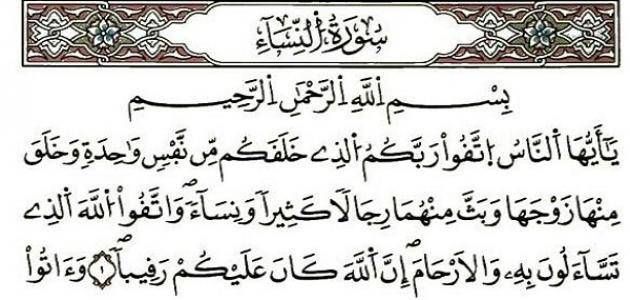 سُورَةُ النِّسَآءِ
بِسْمِ اِ۬للَّهِ اِ۬لرَّحْمَٰنِ اِ۬لرَّحِيمِ
يَٰٓأَيُّهَا اَ۬لنَّاسُ اُ۪تَّقُواْ رَبَّكُمُ اُ۬لذِے خَلَقَكُم مِّن نَّفْسٖ وَٰحِدَةٖ وَخَلَقَ
مِنْهَا زَوْجَهَا وَبَثَّ مِنْهُمَا رِجَالاٗ كَثِيراٗ وَنِسَآءٗۖ وَاتَّقُواْ اُ۬للَّهَ اَ۬لذِے
تَسَّآءَلُونَ بِهِۦ وَالَارْحَامَۖ إِنَّ اَ۬للَّهَ كَانَ عَلَيْكُمْ رَقِيباٗۖ ١ وَءَاتُواْ